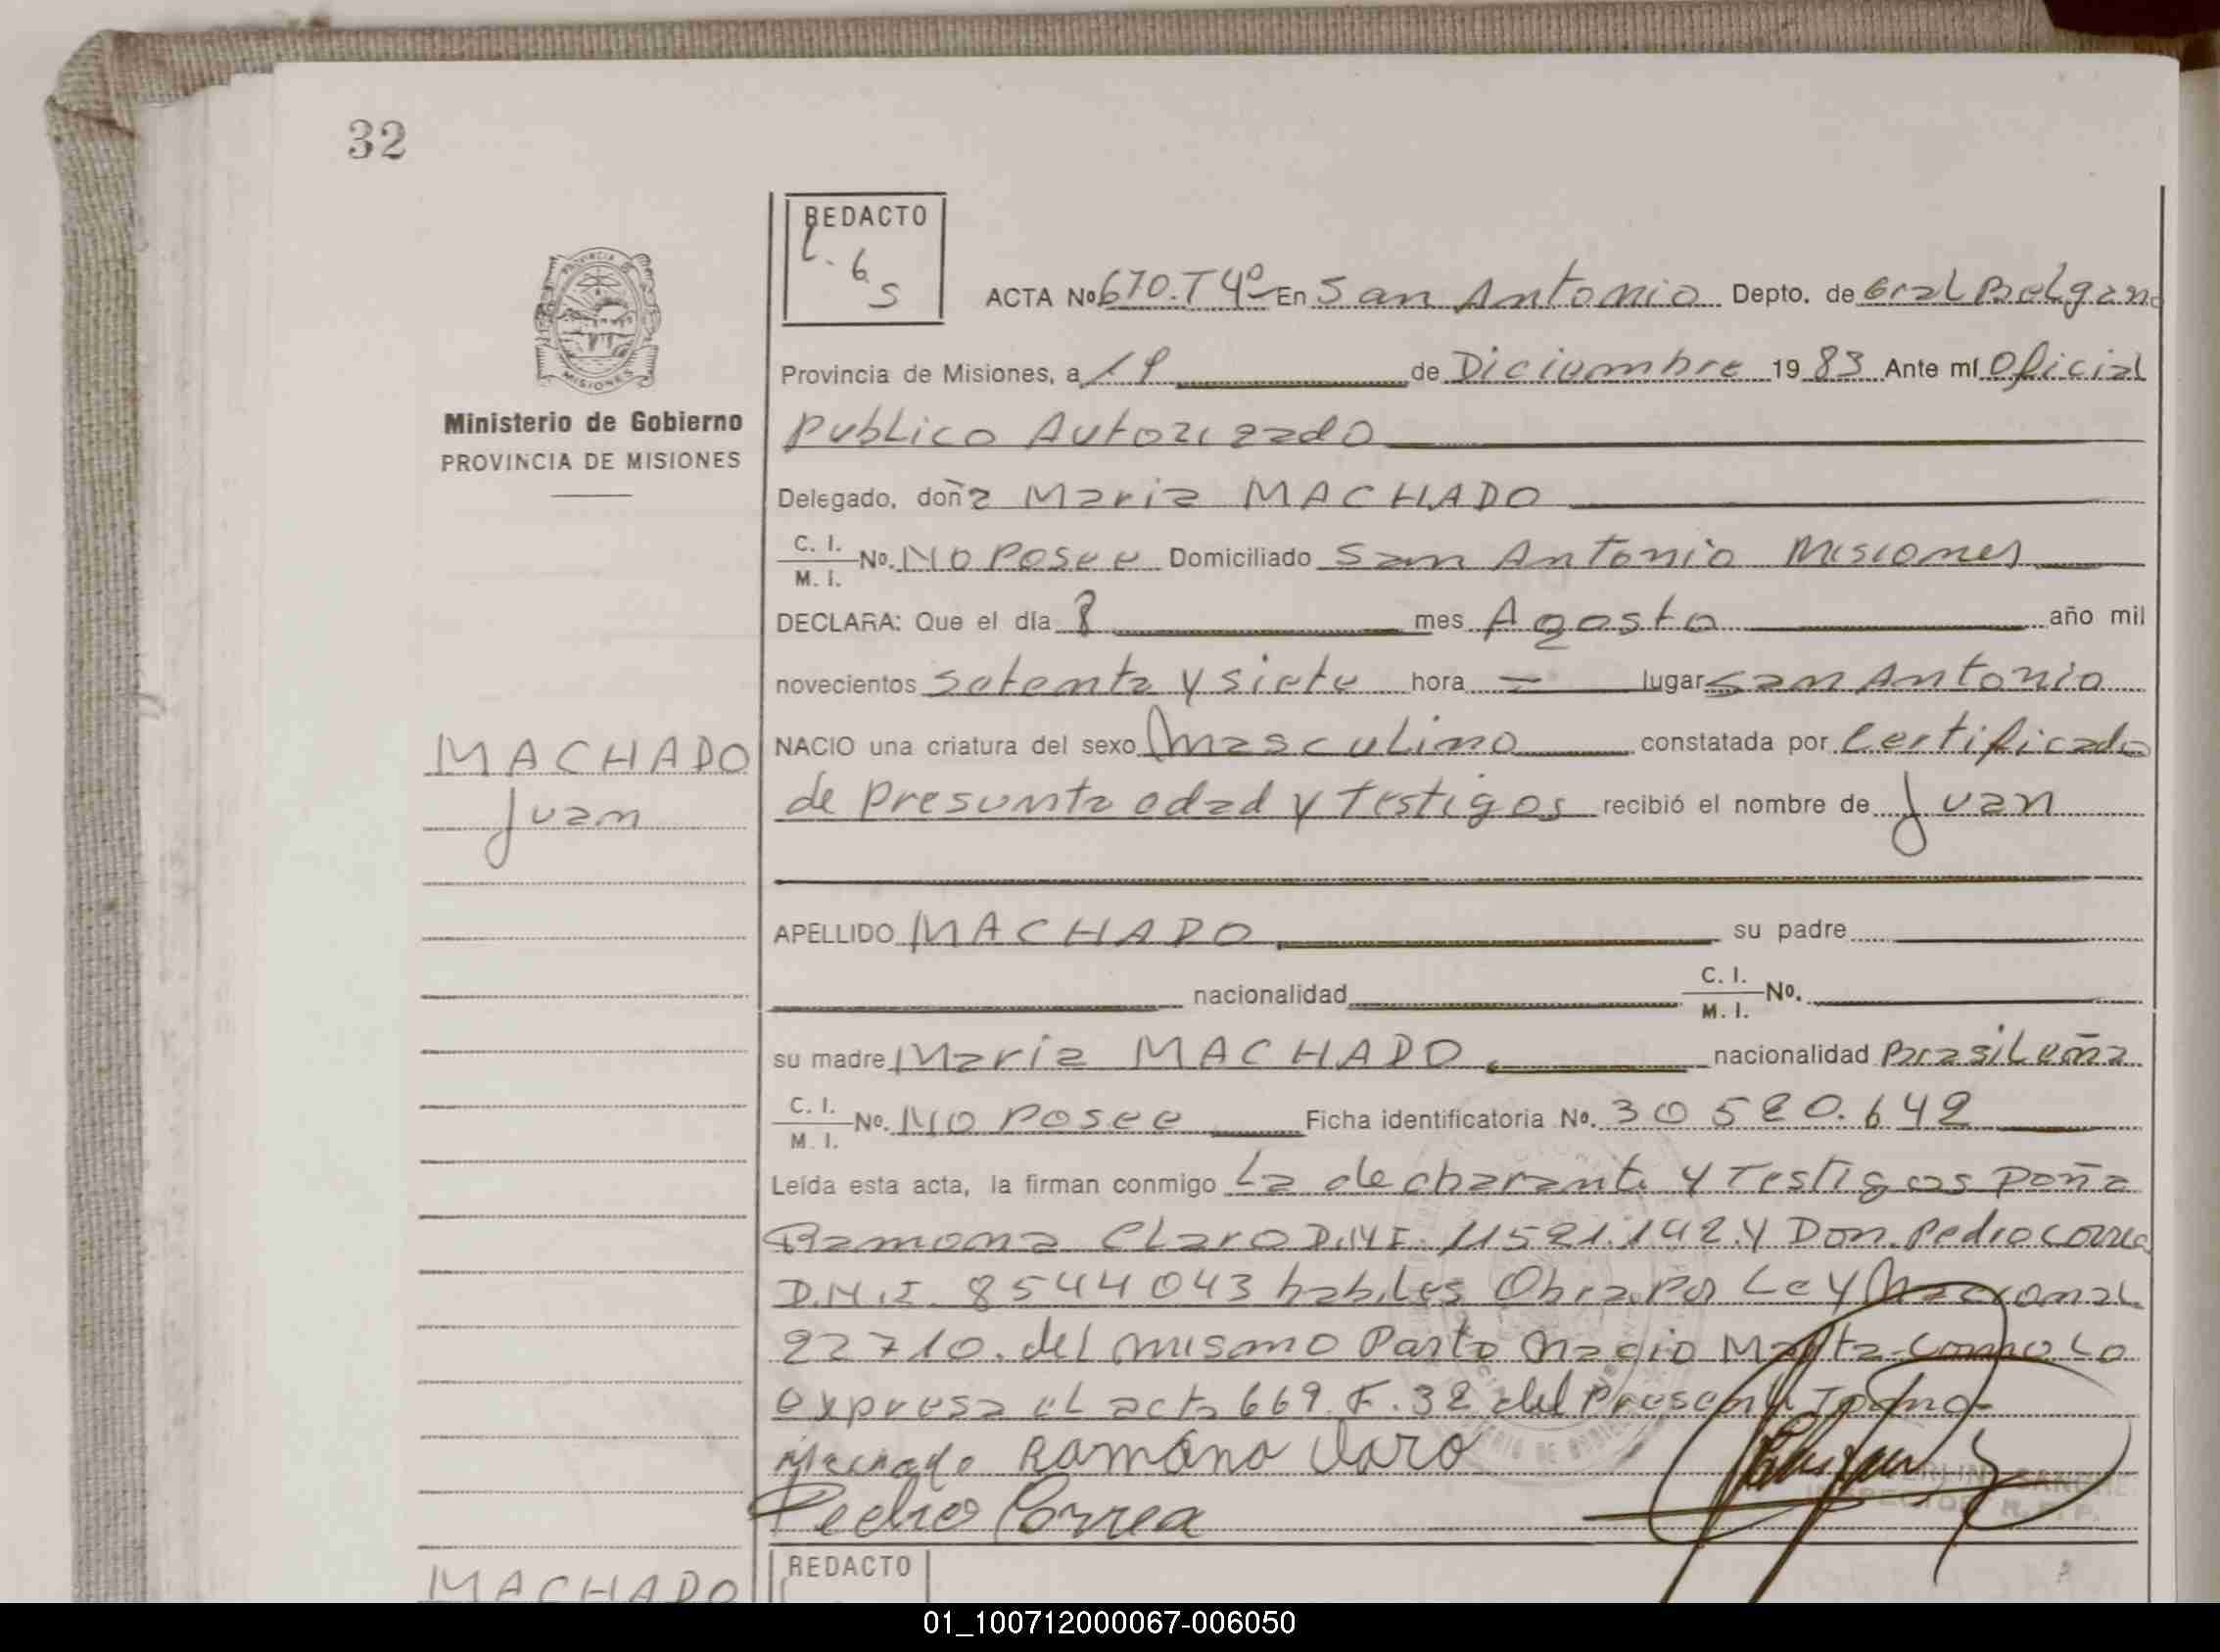 32
REDACTO
L. b S
ACTA No 670. T 4º En San Antonio Depto. de Gral Belgrano
Provincia de Misiones, a 19 de Diciembre 1983 Ante mí Oficial
Publico Autorizado
Ministerio de Gobierno
PROVINCIA DE MISIONES
Delegado, doña Maria MACHADO
C. I. M. I. No. No Posee Domiciliado San Antonio Misiones
DECLARA: Que el día 8 mes Agosto año mil
novecientos setenta y siete hora = lugar San Antonio
MACHADO
Juan
NACIO una criatura del sexo Masculino constatada por Certificado
de Presunta edad y testigos recibió el nombre de Juan
APELLIDO MACHADO su padre
nacionalidad C. I. M. I. No.
su madre Maria MACHADO nacionalidad Brasileña
C. I. M. I. No. No Posee Ficha identificatoria No. 30 580.642
Leída esta acta, la firman conmigo La declarante y Testigos Doña
Ramona Claro D.N.I. 11521.142.y Don. Pedro Correa
D.N.I. 8544043 habiles Obra por Ley Nacional
22710. del mismo Parto Nacio Marta como lo
expresa el acta 669 F. 32 del Presente Tomo-
Machado Ramona Claro
Pedro Correa
MACHADO
REDACTO
01_100712000067-006050